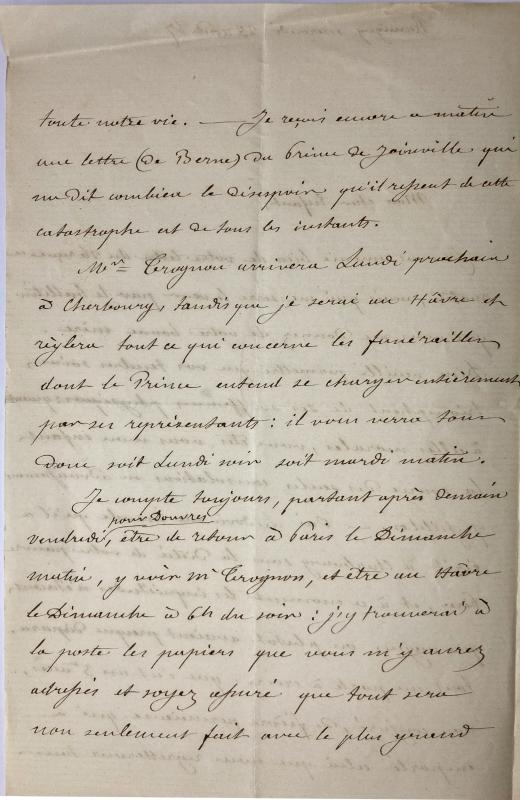 toute notre vie. — Je reçois encore ce matin
une lettre (de Berne) du Prince de Joinville qui
me dit combien le désespoir qu'il ressent de cette
catastrophe est de tous les instants.
Mr. Trognon arrivera Lundi prochain
à Cherbourg, tandis que je serai au Hâvre et
règlera tout ce qui concerne les funérailles
dont le Prince entend se charger entièrement
par ses représentants : il vous verra tous
donc soit Lundi soir soit mardi matin.
Je compte toujours, partant après demain
pour Douvres
vendredi, être de retour à Paris le Dimanche
matin, y voir mr Trognon, et être au Hâvre
le Dimanche à 6h du soir : j'y trouverai à
la poste les papiers que vous m'y aurez
adressés et soyez assuré que tout sera
non seulement fait avec le plus grand